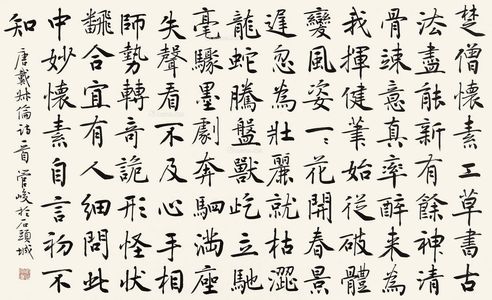 楚僧懷素工草書古
法盡能新有餘神清
骨竦意真率醉來為
我揮健筆始從破體
變風姿一一花開春景
遲忽為壯麗就枯澀
龍蛇騰盤獸屹立馳
毫驟墨劇奔駟滿座
失聲看不及心手相
師勢轉奇詭形怪狀
翻合宜有人細問此
中妙懷素自言初不
知
唐戴叔倫詩一首 管峻於石頭城